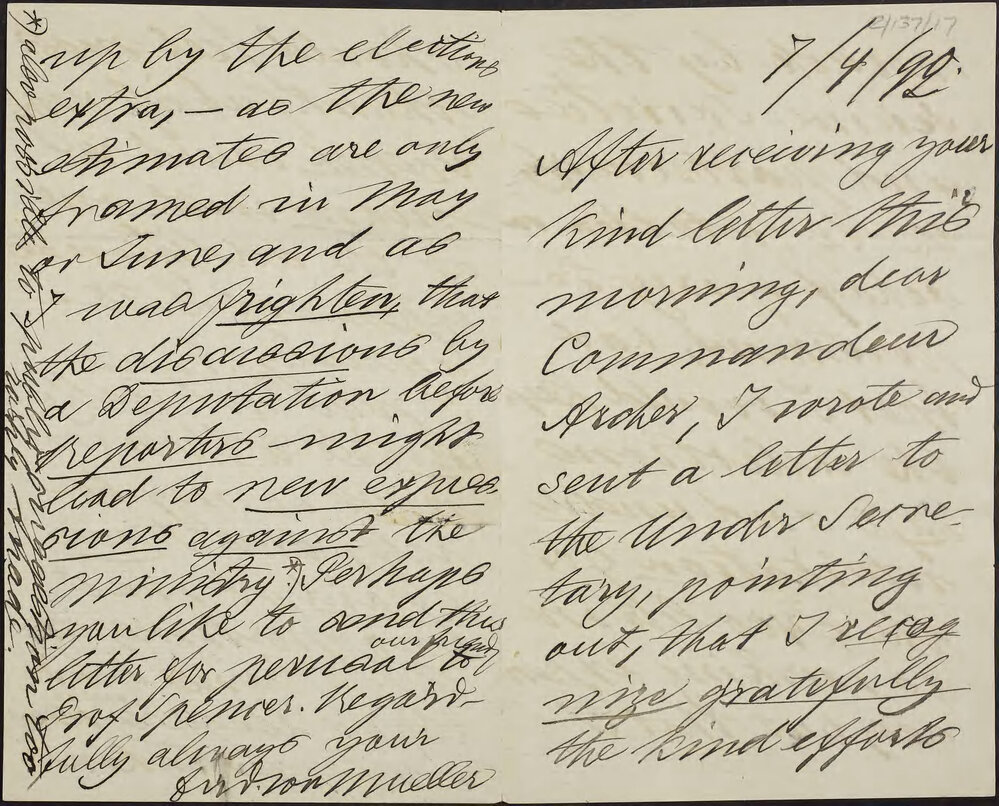 7/4/92.
After receiving your
kind letter this
morning, dear
Commandeur
Archer, I wrote and
sent a letter to
the Under Secre-
tary, pointing
out, that I recog
nize gratefully
the kind efforts
up by the elections
extra, – as the new
estimates are only
framed in May
or June, and as
I was frighten, that
the discussions by
a Deputation before
reporters might
lead to new expres
sions against the
ministry.* Perhaps
you like to send this
letter for perusal to our friend
Prof Spencer. Regard-
fully always your
Ferd. von Mueller
*) also, to too
early made.